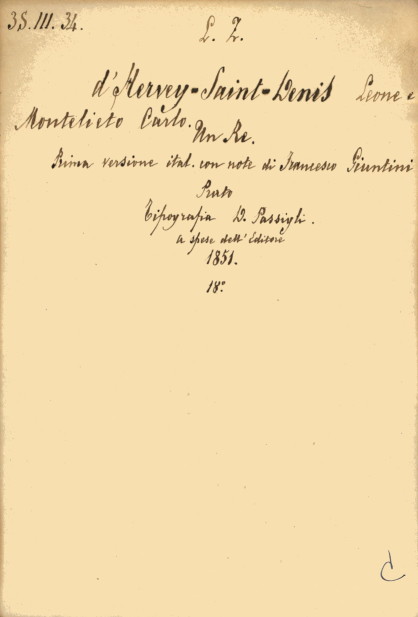 35.III.34.
L. Z.
d'Hervey-Saint-Denis Leone e
Montelieto Carlo.
Un Re.
Prima versione ital. con note di Francesco Giuntini
Prato
Tipografia D. Passigli.
a spese dell'Editore
1851.
18°
C